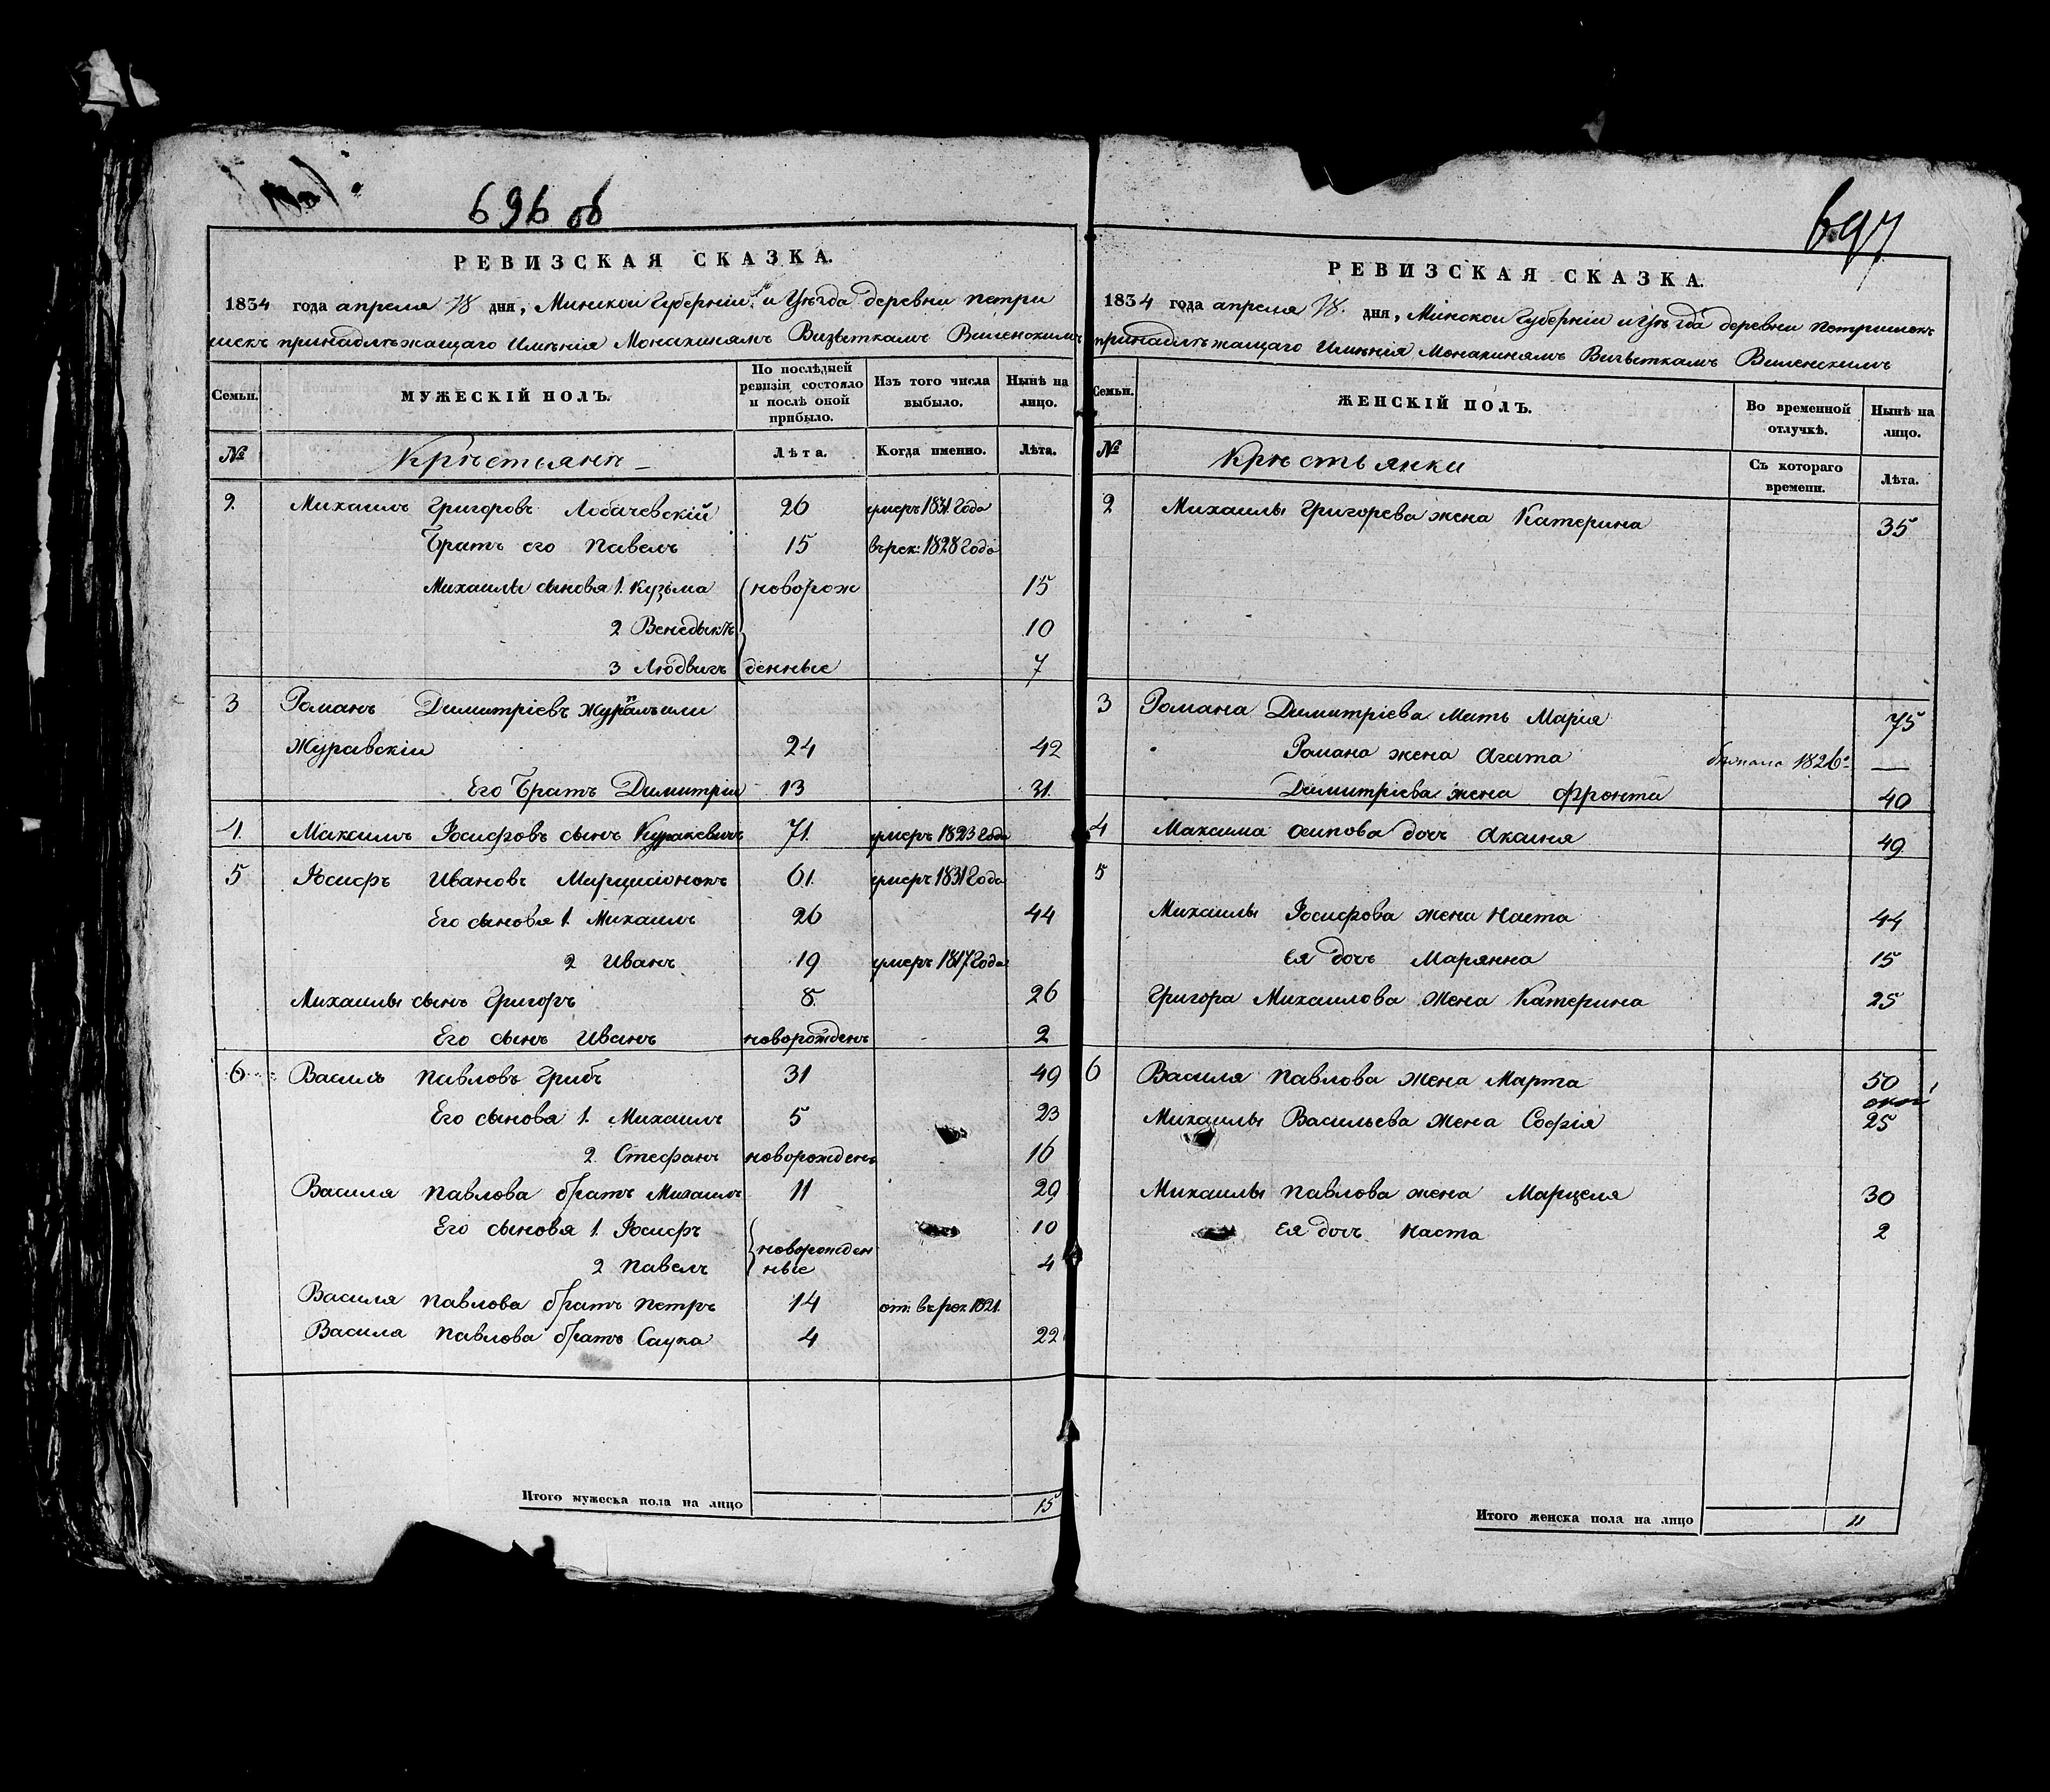 696 об
РЕВИЗСКАЯ СКАЗКА.
1834 года апреля 18 дня, Минской Губерніи и Уѣзда деревни петри
шекъ принадлѣжащаго Имѣнія Монахинямъ Визыткамъ Виленскимъ
Семьи. МУЖЕСКІЙ ПОЛЪ. По послѣдней ревизіи состояло и послѣ оной прибыло. Изъ того числа выбыло. Нынѣ на лицо.
№ Крѣстьянѣ Лѣта. Когда именно. Лѣта.
2. Михаилъ Григоровъ Лобачевскій 26 умеръ 1831 Года
Братъ его Павелъ 15 въ рек: 1828 Года
Михаилы сыновя 1. Кузьма новорож 15
2 Венедыктъ 10
3 Людвигъ денные 7
3 Романъ Димитріевъ или
Журавскіи 24 42
Его Братъ Димитріи 13 31.
4. Максимъ Іосифовъ сынъ 71. умеръ 1823 Года
5 Іосифъ Ивановъ 61. умеръ 1831 Года
Его сыновя 1. Михаилъ 26 44
2 Иванъ 19 умеръ 1817 Года
Михаилы сынъ Григоръ 8. 26
Его сынъ Иванъ новорожденъ 2
6 Василь Павловъ Грибъ 31 49
Его сынова 1. Михаилъ 5 23
2. Стефанъ новорожденъ 16
Василя Павлова братъ Михаилъ 11 29
Его сыновя 1. Іосифъ новорожден 10
2 Павелъ ные 4
Василя Павлова братъ Петръ 14 от: въ рек 1821.
Василя Павлова братъ Саука 4 22
Итого мужеска пола на лицо 15
697
РЕВИЗСКАЯ СКАЗКА.
1834 года апреля 18. дня, Минской Губерніи и Уѣзда деревни петришекъ
принадлѣжащаго Имѣнія Монахинямъ Визыткамъ Виленскимъ
Семьи. ЖЕНСКІЙ ПОЛЪ. Во временной отлучкѣ. Нынѣ на лицо.
№ Крѣстьянки Съ котораго времени. Лѣта.
2 Михаилы Григорева жена Катерина 35
3 Романа Димитріева Мать Марія 75
Романа жена Агата 1826 —
Димитріева жена 40
4 Максима Осипова дочь 49
5
Михаилы Іосифова жена Наста 44
Ея дочь Марянна 15
Григора Михаилова жена Катерина 25
6 Василя Павлова жена Марта 50
Михаилы Васильева жена Софія 25
Михаилы Павлова жена Марцеля 30
Ея дочь Наста 2
Итого женска пола на лицо 11